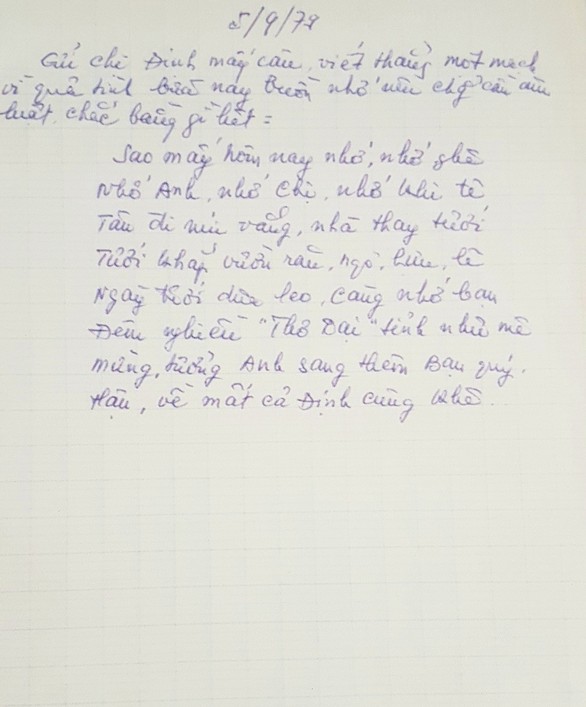 5/9/79
Gửi chị Định mấy câu, viết thẳng một mạch
vì quả tình bữa nay buồn nhớ nên chả cần âm
luật, chắc bằng gì hết =
Sao mấy hôm nay nhớ, nhớ ghê
Nhớ Anh, nhớ Chị, nhớ khi tê
Tân đi núi vắng, nhà thay tưới
Tưới khắp vườn rau, ngò, hẹ, lê
Ngày tưới dưa leo, càng nhớ bạn
Đêm nghiền "Thơ Dại" tỉnh như mê
mừng, tưởng Anh sang thêm Bạn quý.
Hậu, về mất cả Định cùng Khê.